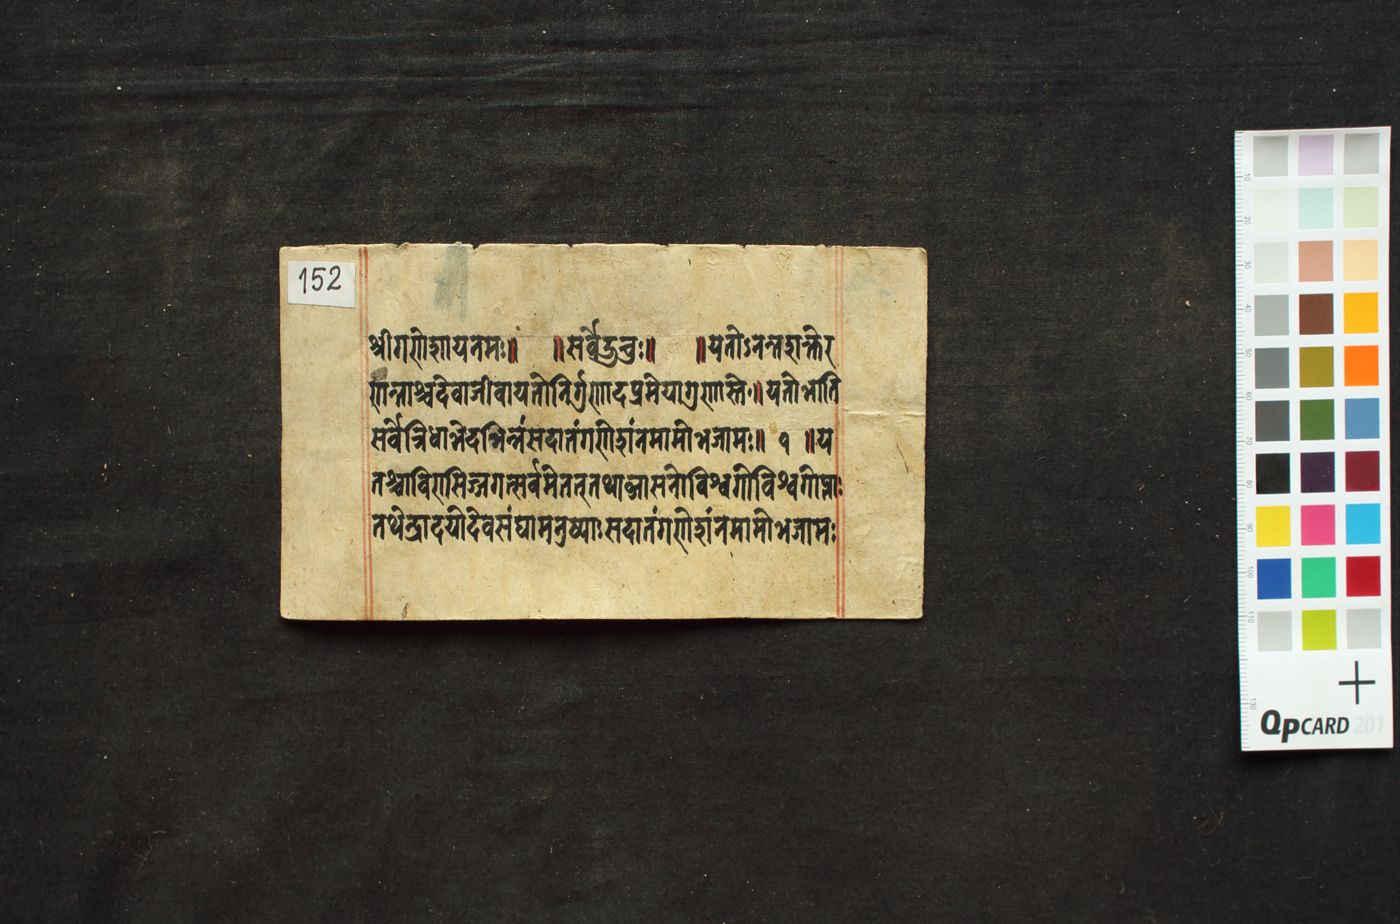 152
श्रीगणेशायनमः॥ ॥सर्वेदुत्रुः॥ ॥यतोऽनन्तशक्तेर
णन्ताश्चदेवाजीवायतोनिर्गुणादप्रमेयागुणास्ते॥यतोभाति
सर्वेत्रिधाभेदभिन्नंसदातंगणेशंनमामोभजामः॥ १ ॥य
तश्चाविरासिज्जगत्सर्वमेतत्तथाब्जासनोविश्वगोविश्वगोप्ताः
तथेन्द्रादयोदेवसंघामनुष्याःसदातंगणेशंनमामोभजामः
QPCARD 201